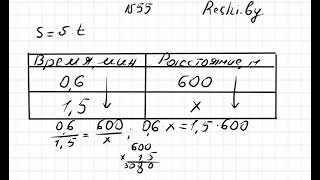 N555 Reshi.by
S = S · t
Время, мин Расстояние, м
0,6 600
1,5 x
0,6/1,5 = 600/x ; 0,6 x = 1,5 · 600
600
× 1,5